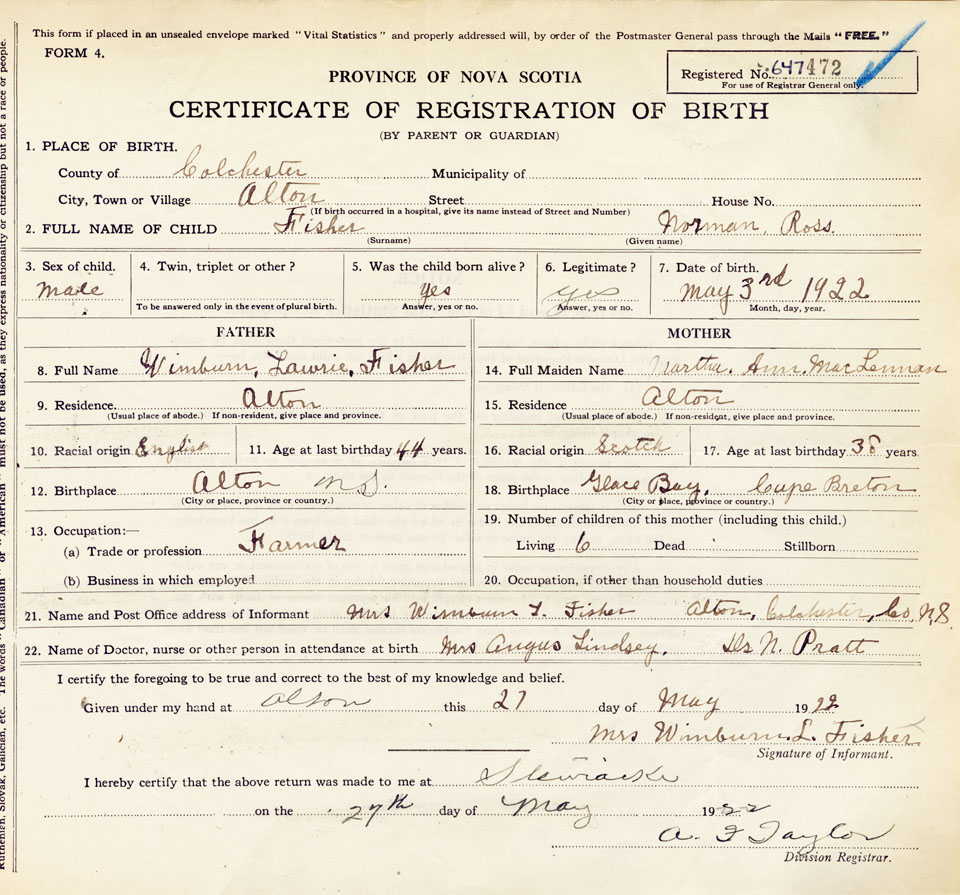 This form if placed in an unsealed envelope marked "Vital Statistics" and properly addressed will, by order of the Postmaster General pass through the Mails "FREE."
FORM 4.
Registered No. 647472
For use of Registrar General only.
PROVINCE OF NOVA SCOTIA
CERTIFICATE OF REGISTRATION OF BIRTH
(BY PARENT OR GUARDIAN)
1. PLACE OF BIRTH.
County of Colchester Municipality of
City, Town or Village Alton Street House No.
(If birth occurred in a hospital, give its name instead of Street and Number)
2. FULL NAME OF CHILD Fisher Norman, Ross.
(Surname) (Given name)
3. Sex of child. 4. Twin, triplet or other? 5. Was the child born alive? 6. Legitimate? 7. Date of birth.
male yes yes May 3rd 1922
To be answered only in the event of plural birth. Answer, yes or no. Answer, yes or no. Month, day, year.
FATHER MOTHER
8. Full Name Wimburn, Lawrie, Fisher 14. Full Maiden Name Martha. Ann. MacLennan
9. Residence Alton 15. Residence Alton
(Usual place of abode.) If non-resident, give place and province. (Usual place of abode.) If non-resident, give place and province.
10. Racial origin English 11. Age at last birthday 44 years. 16. Racial origin Scotch 17. Age at last birthday 38 years
12. Birthplace Alton N S. 18. Birthplace Glace Bay, Cape Breton
(City or place, province or country.) (City or place, province or country.)
13. Occupation:— 19. Number of children of this mother (including this child.)
(a) Trade or profession Farmer Living 6 Dead Stillborn
(b) Business in which employed 20. Occupation, if other than household duties
21. Name and Post Office address of Informant Mrs Wimburn L. Fisher Alton, Colchester, Co, N,S.
22. Name of Doctor, nurse or other person in attendance at birth Mrs Angus Lindsey, Dr N. Pratt
I certify the foregoing to be true and correct to the best of my knowledge and belief.
Given under my hand at Alton this 27 day of May 1922
Mrs Wimburn L. Fisher
Signature of Informant.
I hereby certify that the above return was made to me at Stewiacke
on the 27th day of May 1922
A. F Taylor
Division Registrar.
Ruthenian, Slovak, Galician, etc. The words "Canadian" or "American" must not be used, as they express nationality or citizenship but not a race or people.